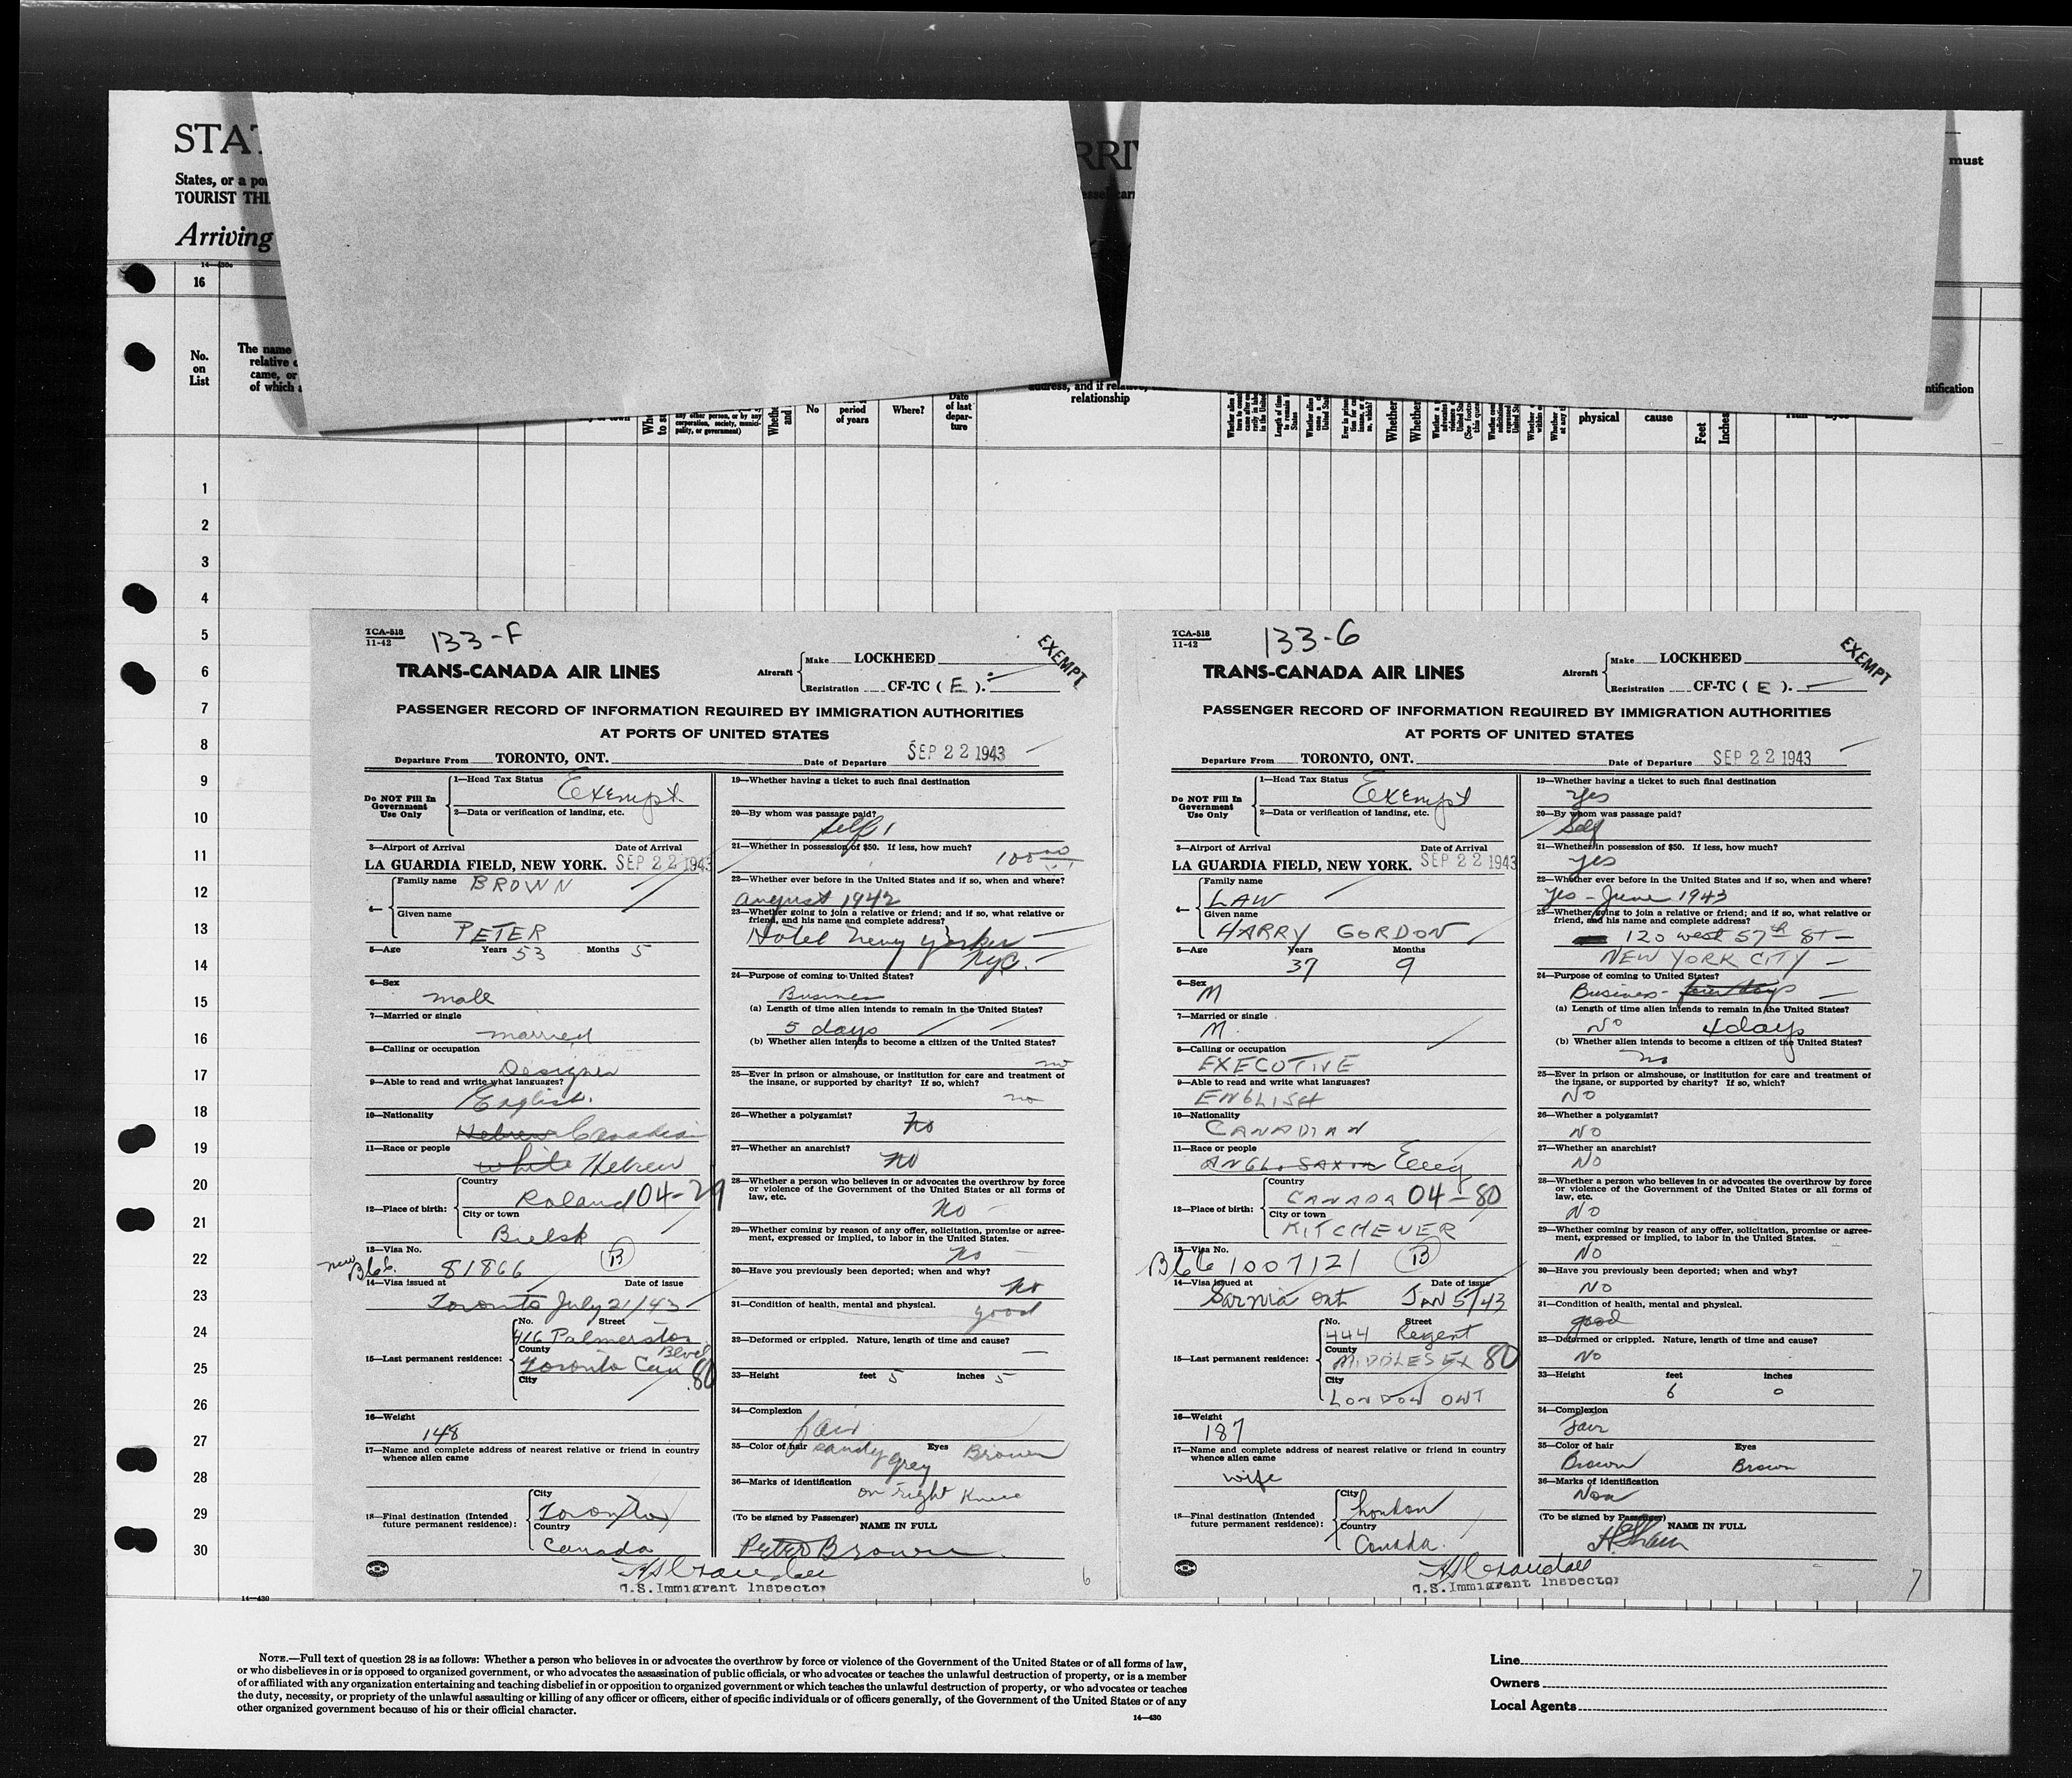 STAT
RRIV
must
States, or a po
TOURIST THI
Arriving
14—430c
16
No.
on
List
The name
relative o
came, or
of which a
any other person, or by any
corporation, society, munici-
pality, or government)
No
period
of years
Where?
Date
of last
depar-
ture
address, and if relative,
relationship
physical
cause
Feet
Inches
ntification
1
2
3
4
5
6
7
8
9
10
11
12
13
14
15
16
17
18
19
20
21
22
23
24
25
26
27
28
29
30
TCA-518
11-42
133-F
EXEMPT
TRANS-CANADA AIR LINES
Aircraft
Make LOCKHEED
Registration CF-TC ( E ).
PASSENGER RECORD OF INFORMATION REQUIRED BY IMMIGRATION AUTHORITIES
AT PORTS OF UNITED STATES
Departure From TORONTO, ONT. Date of Departure SEP 22 1943
Do NOT Fill In
Government
Use Only
1—Head Tax Status Exempt
2—Data or verification of landing, etc.
3—Airport of Arrival Date of Arrival
LA GUARDIA FIELD, NEW YORK. SEP 22 1943
4—
Family name BROWN
Given name
PETER
5—Age Years 53 Months 5
6—Sex
male
7—Married or single
married
8—Calling or occupation
Designer
9—Able to read and write what languages?
English.
10—Nationality
Hebrew Canadian
11—Race or people
white Hebrew
12—Place of birth:
Country
Poland 04-29
City or town
Bielsk
13—Visa No.
new B66. 81866 B
14—Visa issued at Date of issue
Toronto July 21/43
15—Last permanent residence:
No. Street
416 Palmerston
Blvd
County
Toronto Can 80
City
16—Weight
148
17—Name and complete address of nearest relative or friend in country
whence alien came
18—Final destination (Intended
future permanent residence):
City
Toronto
Country
Canada
19—Whether having a ticket to such final destination
20—By whom was passage paid?
self
21—Whether in possession of $50. If less, how much?
100 00
22—Whether ever before in the United States and if so, when and where?
august 1942
23—Whether going to join a relative or friend; and if so, what relative or
friend, and his name and complete address?
Hotel New Yorker
NYC.
24—Purpose of coming to United States?
Business
(a) Length of time alien intends to remain in the United States?
5 days
(b) Whether alien intends to become a citizen of the United States?
no
25—Ever in prison or almshouse, or institution for care and treatment of
the insane, or supported by charity? If so, which?
no
26—Whether a polygamist? no
27—Whether an anarchist?
no
28—Whether a person who believes in or advocates the overthrow by force
or violence of the Government of the United States or all forms of
law, etc.
no
29—Whether coming by reason of any offer, solicitation, promise or agree-
ment, expressed or implied, to labor in the United States.
no
30—Have you previously been deported; when and why?
no
31—Condition of health, mental and physical.
good
32—Deformed or crippled. Nature, length of time and cause?
—
33—Height feet 5 inches 5
34—Complexion
fair
35—Color of hair sandy grey Eyes Brown
36—Marks of identification
on right Knee
(To be signed by Passenger) NAME IN FULL
Peter Brown
U.S. Immigrant Inspector
6
TCA-518
11-42
133-G
EXEMPT
TRANS-CANADA AIR LINES
Aircraft
Make LOCKHEED
Registration CF-TC ( E ).
PASSENGER RECORD OF INFORMATION REQUIRED BY IMMIGRATION AUTHORITIES
AT PORTS OF UNITED STATES
Departure From TORONTO, ONT. Date of Departure SEP 22 1943
Do NOT Fill In
Government
Use Only
1—Head Tax Status Exempt
2—Data or verification of landing, etc.
3—Airport of Arrival Date of Arrival
LA GUARDIA FIELD, NEW YORK. SEP 22 1943
4—
Family name
LAW
Given name
HARRY GORDON
5—Age Years Months
37 9
6—Sex
M
7—Married or single
M.
8—Calling or occupation
EXECUTIVE
9—Able to read and write what languages?
ENGLISH
10—Nationality
CANADIAN
11—Race or people
ANGLO SAXON Eng
12—Place of birth:
Country
CANADA 04-80
City or town
KITCHENER
13—Visa No.
B66 1007121 B
14—Visa issued at Date of issue
Sarnia Ont JAN 5/43
15—Last permanent residence:
No. Street
444 Regent
County
MIDDLESEX 80
City
LONDON ONT
16—Weight
187
17—Name and complete address of nearest relative or friend in country
whence alien came
wife
18—Final destination (Intended
future permanent residence):
City
London
Country
Canada.
19—Whether having a ticket to such final destination
yes
20—By whom was passage paid?
Self
21—Whether in possession of $50. If less, how much?
yes
22—Whether ever before in the United States and if so, when and where?
Yes - June 1943
23—Whether going to join a relative or friend; and if so, what relative or
friend, and his name and complete address?
120 west 57th St
NEW YORK CITY
24—Purpose of coming to United States?
Business - four days
(a) Length of time alien intends to remain in the United States?
No 4 days
(b) Whether alien intends to become a citizen of the United States?
no
25—Ever in prison or almshouse, or institution for care and treatment of
the insane, or supported by charity? If so, which?
NO
26—Whether a polygamist?
NO
27—Whether an anarchist?
NO
28—Whether a person who believes in or advocates the overthrow by force
or violence of the Government of the United States or all forms of
law, etc.
NO
29—Whether coming by reason of any offer, solicitation, promise or agree-
ment, expressed or implied, to labor in the United States.
NO
30—Have you previously been deported; when and why?
NO
31—Condition of health, mental and physical.
good
32—Deformed or crippled. Nature, length of time and cause?
NO
33—Height feet inches
6 0
34—Complexion
Fair
35—Color of hair Eyes
Brown Brown
36—Marks of identification
Non
(To be signed by Passenger) NAME IN FULL
U.S. Immigrant Inspector
7
14—430
NOTE.—Full text of question 28 is as follows: Whether a person who believes in or advocates the overthrow by force or violence of the Government of the United States or of all forms of law,
or who disbelieves in or is opposed to organized government, or who advocates the assassination of public officials, or who advocates or teaches the unlawful destruction of property, or is a member
of or affiliated with any organization entertaining and teaching disbelief in or opposition to organized government or which teaches the unlawful destruction of property, or who advocates or teaches
the duty, necessity, or propriety of the unlawful assaulting or killing of any officer or officers, either of specific individuals or of officers generally, of the Government of the United States or of any
other organized government because of his or their official character.
14—430
Line
Owners
Local Agents